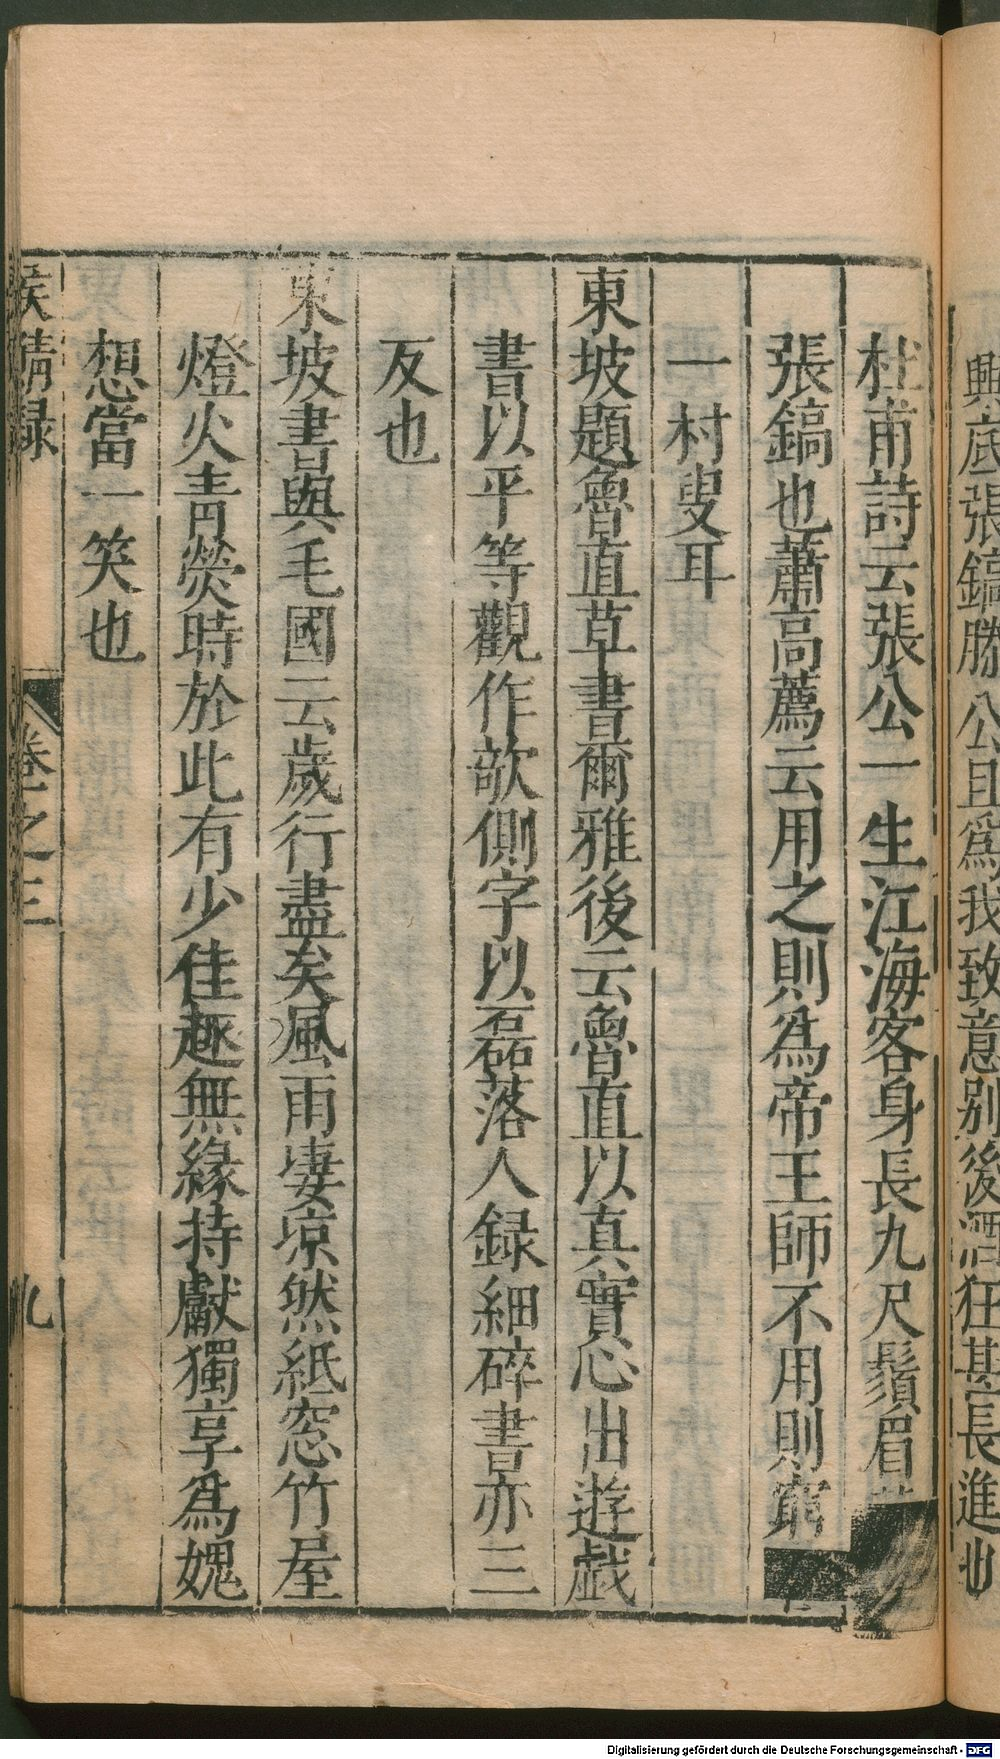 興底張鎬勝公且為我致意別後酒狂甚長進也
杜甫詩云張公一生江海客身長九尺鬚眉
張鎬也蕭高薦云用之則為帝王師不用則窮
一村叟耳
東坡題魯直草書爾雅後云魯直以真實心出遊戲
書以平等觀作欹側字以磊落人録細碎書亦三
反也
東坡書與毛國云歲行盡矣風雨凄凉然紙窓竹屋
燈火青熒時於此有少佳趣無緣持獻獨享為媿
想當一笑也
侯鯖録 卷之三 九
Digitalisierung gefördert durch die Deutsche Forschungsgemeinschaft - DFG